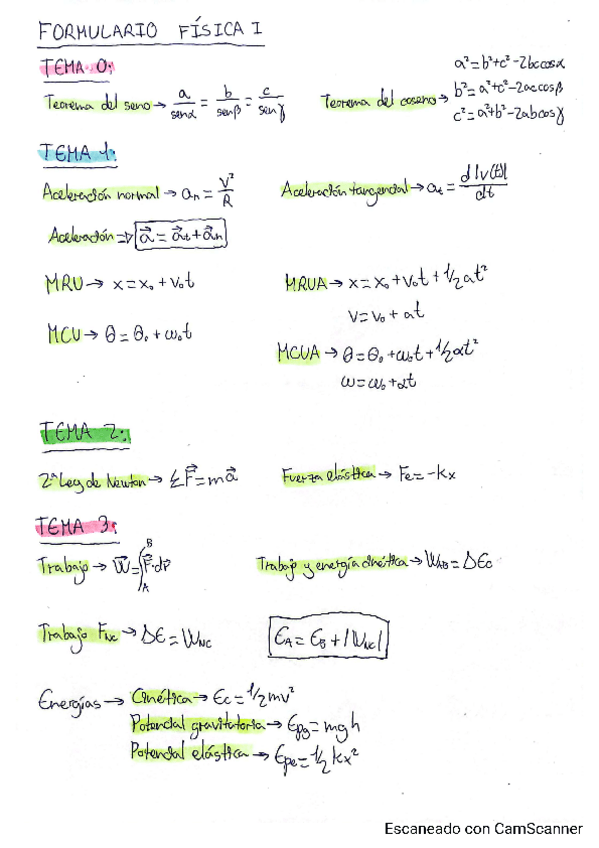 FORMULARIO FÍSICA I
TEMA 0:
Teorema del seno → a/senα = b/senβ = c/senγ
Teorema del coseno → a² = b²+c²-2bccosα
b² = a²+c²-2accosβ
c² = a²+b²-2abcosγ
TEMA 1:
Aceleración normal → an = V²/R
Aceleración tangencial → at = d|v(t)|/dt
Aceleración ⇒ a⃗ = a⃗t + a⃗n
MRU → x = x₀ + v₀t
MRUA → x = x₀ + v₀t + 1/2at²
v = v₀ + at
MCU → θ = θ₀ + ω₀t
MCUA → θ = θ₀ + ω₀t + 1/2αt²
ω = ω₀ + αt
TEMA 2:
2ª Ley de Newton → ΣF⃗ = ma⃗
Fuerza elástica → Fe = -kx
TEMA 3:
Trabajo → W⃗ = ∫ₐᴮ F⃗·dr⃗
Trabajo y energía cinética → WAB = ΔEc
Trabajo FNC → ΔE = WNC
EA = EB + |WNC|
Energías → Cinética → Ec = 1/2mv²
Potencial gravitatoria → Epg = mgh
Potencial elástica → Epe = 1/2kx²
Escaneado con CamScanner